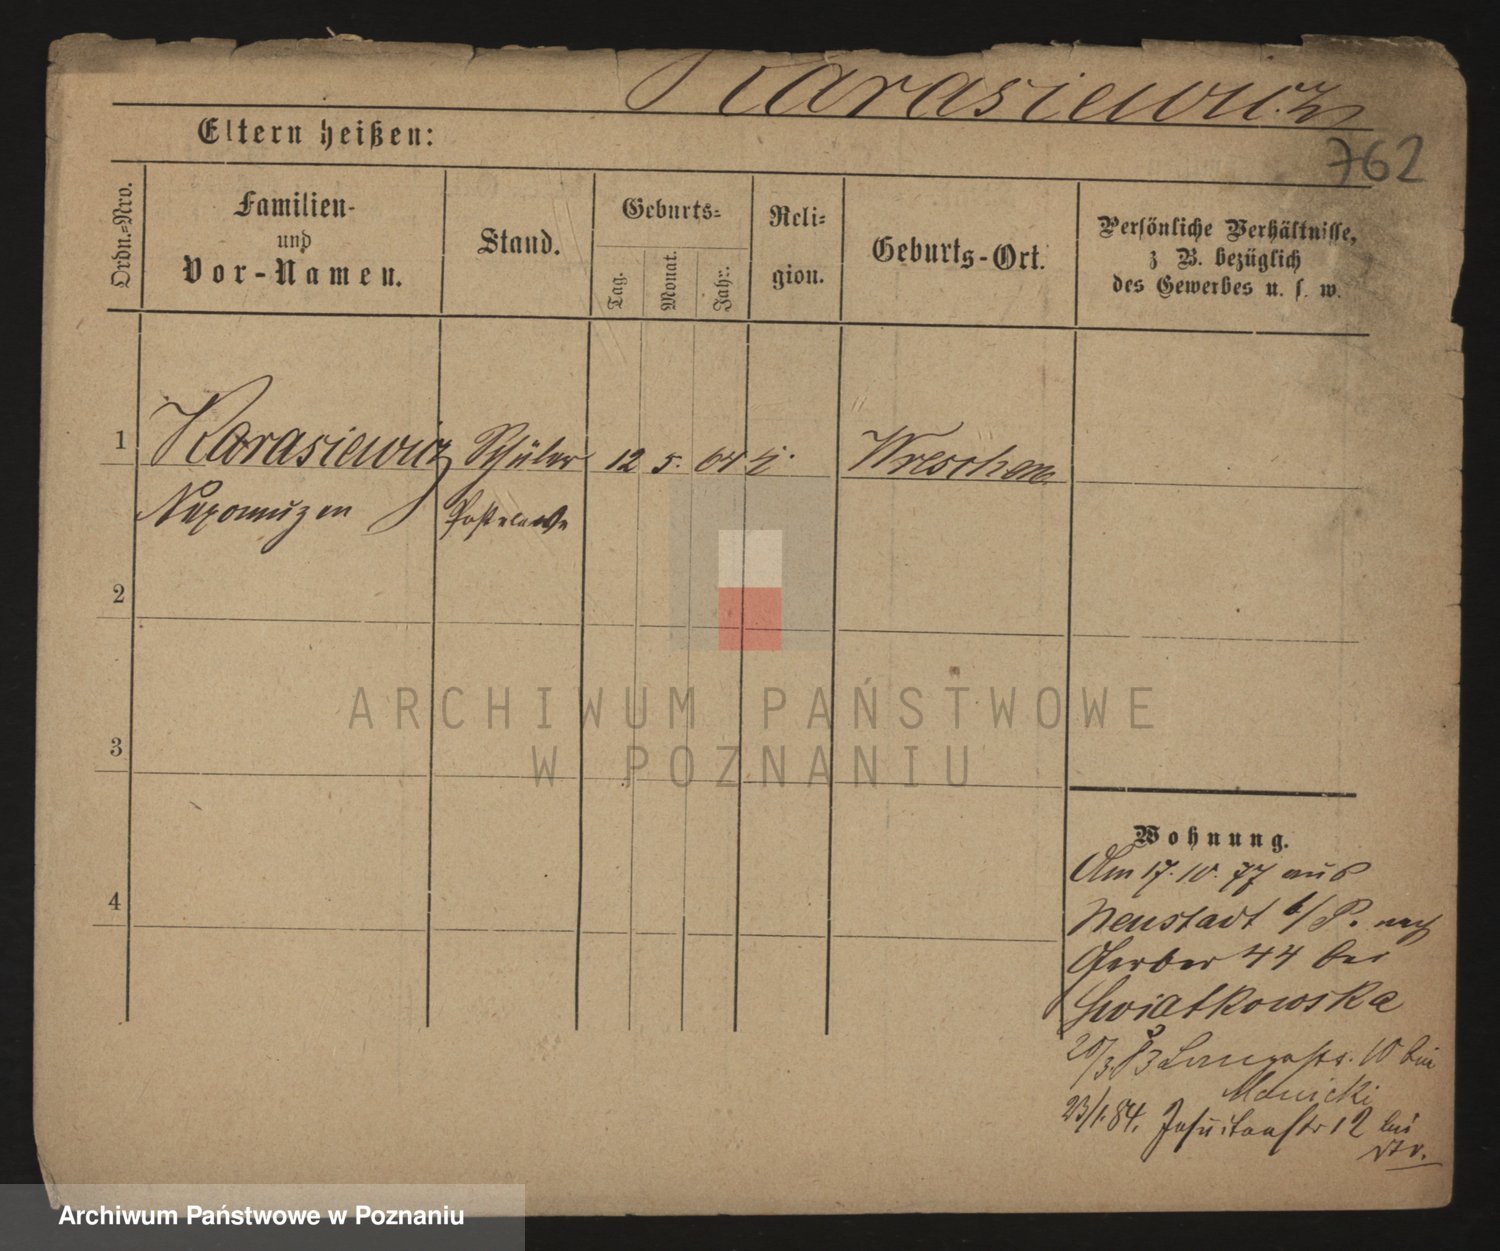 Karasiewicz
Eltern heißen:
762
Ordn.=Nro.
Familien-
und
Vor-Namen.
Stand.
Geburts=
Tag.
Monat.
Jahr.
Reli=
gion.
Geburts-Ort.
Persönliche Verhältnisse,
z B. bezüglich
des Gewerbes u. s. w.
1
Karasiewicz Schüler 12 5. 64 Wreschen
Nepomuzen
2
3
4
ARCHIWUM PAŃSTWOWE
W POZNANIU
Wohnung.
Am 17. 10. 77 aus
Neustadt b/P. nach
Gerber 44 bei
Swiatkowska
20/3. 83 Langestr. 10 bei
Manicki
23/1. 84. Jesuitenstr 12 bei
dto.
Archiwum Państwowe w Poznaniu